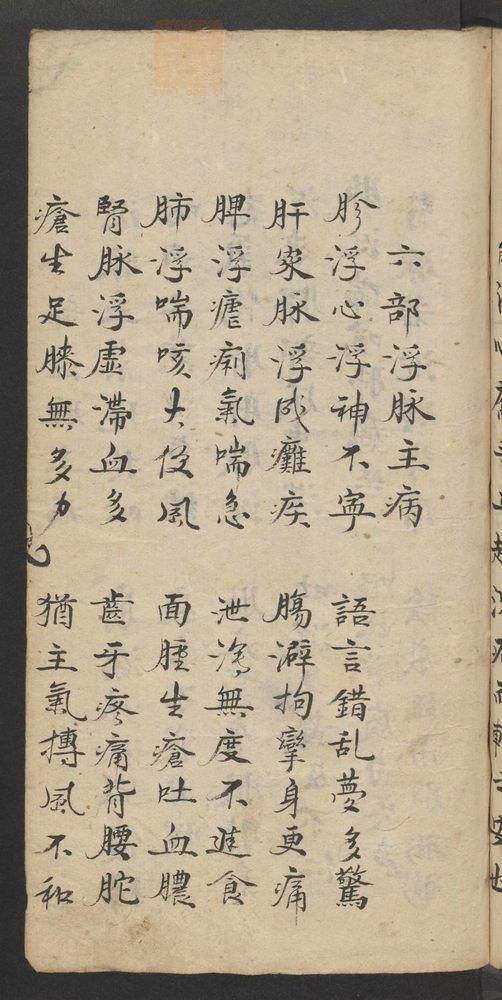 六部浮脉主病
胗浮心浮神不寧 語言錯乱夢多驚
肝家脉浮成癱疾 腸澼拘攣身更痛
脾浮瘧痢氣喘急 泄瀉無度不進食
肺浮喘咳大伇風 面腫生瘡吐血膿
腎脉浮虛滯血多 齒牙疼痛背腰胣
瘡生足膝無多力 猶主氣搏風不和